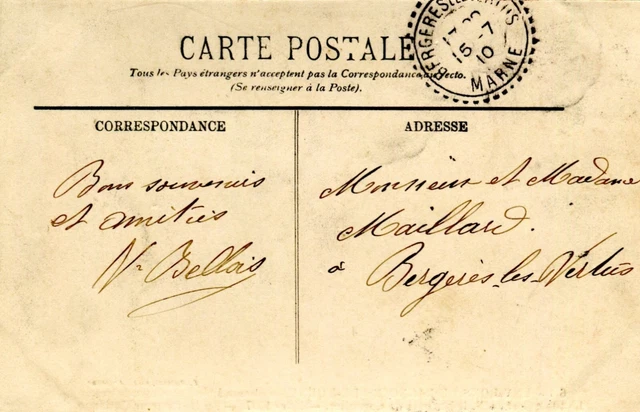 CARTE POSTALE
Tous les Pays étrangers n'acceptent pas la Correspondance au recto.
(Se renseigner à la Poste).
BERGERES-LES-VERTUS
15-7
10
MARNE
CORRESPONDANCE
Bons souvenirs
et amitiés
ADRESSE
Monsieur et Madame
Maillard.
à Bergères-les-Vertus